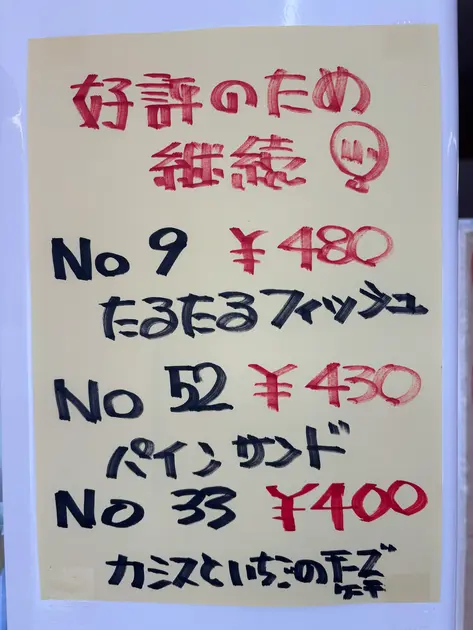 好評のため
継続
No 9 ¥480
たるたるフィッシュ
No 52 ¥430
パインサンド
No 33 ¥400
カシスといちごのチーズ
ケーキ